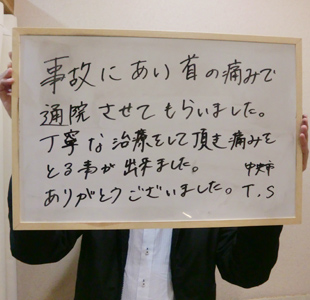 事故にあい首の痛みで
通院させてもらいました。
丁寧な治療をして頂き痛みを
とる事が出来ました。 中央市
ありがとうございました。T.S